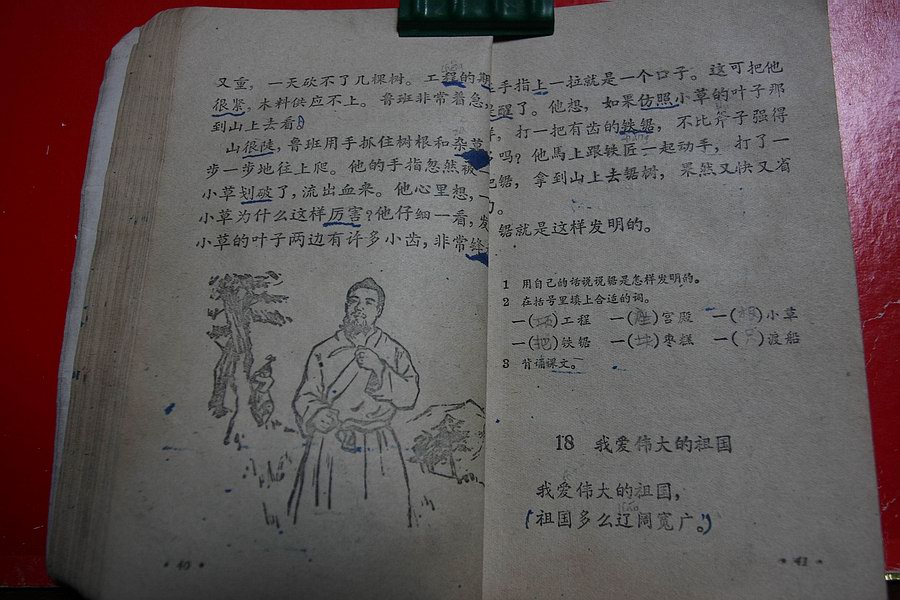 又重，一天砍不了几棵树。工程的期
很紧，木料供应不上。鲁班非常着急，
到山上去看。
山很陡，鲁班用手抓住树根和杂草
步一步地往上爬。他的手指忽然被一
小草划破了，流出血来。他心里想，一
小草为什么这样厉害？他仔细一看，发
小草的叶子两边有许多小齿，非常锋
• 40 •
手指上一拉就是一个口子。这可把他
醒了。他想，如果仿照小草的叶子那
，打一把有齿的铁锯，不比斧子强得
吗？他馬上跟铁匠一起动手，打了一
锯，拿到山上去锯树，果然又快又省
。
锯就是这样发明的。
1 用自己的话说说锯是怎样发明的。
2 在括号里填上合适的词。
一( )工程 一(座)宫殿 一(棵)小草
一(把)铁锯 一(块)枣糕 一( )渡船
3 背诵课文。
18 我爱伟大的祖国
我爱伟大的祖国，
(祖国多么辽阔宽广。)
• 41 •